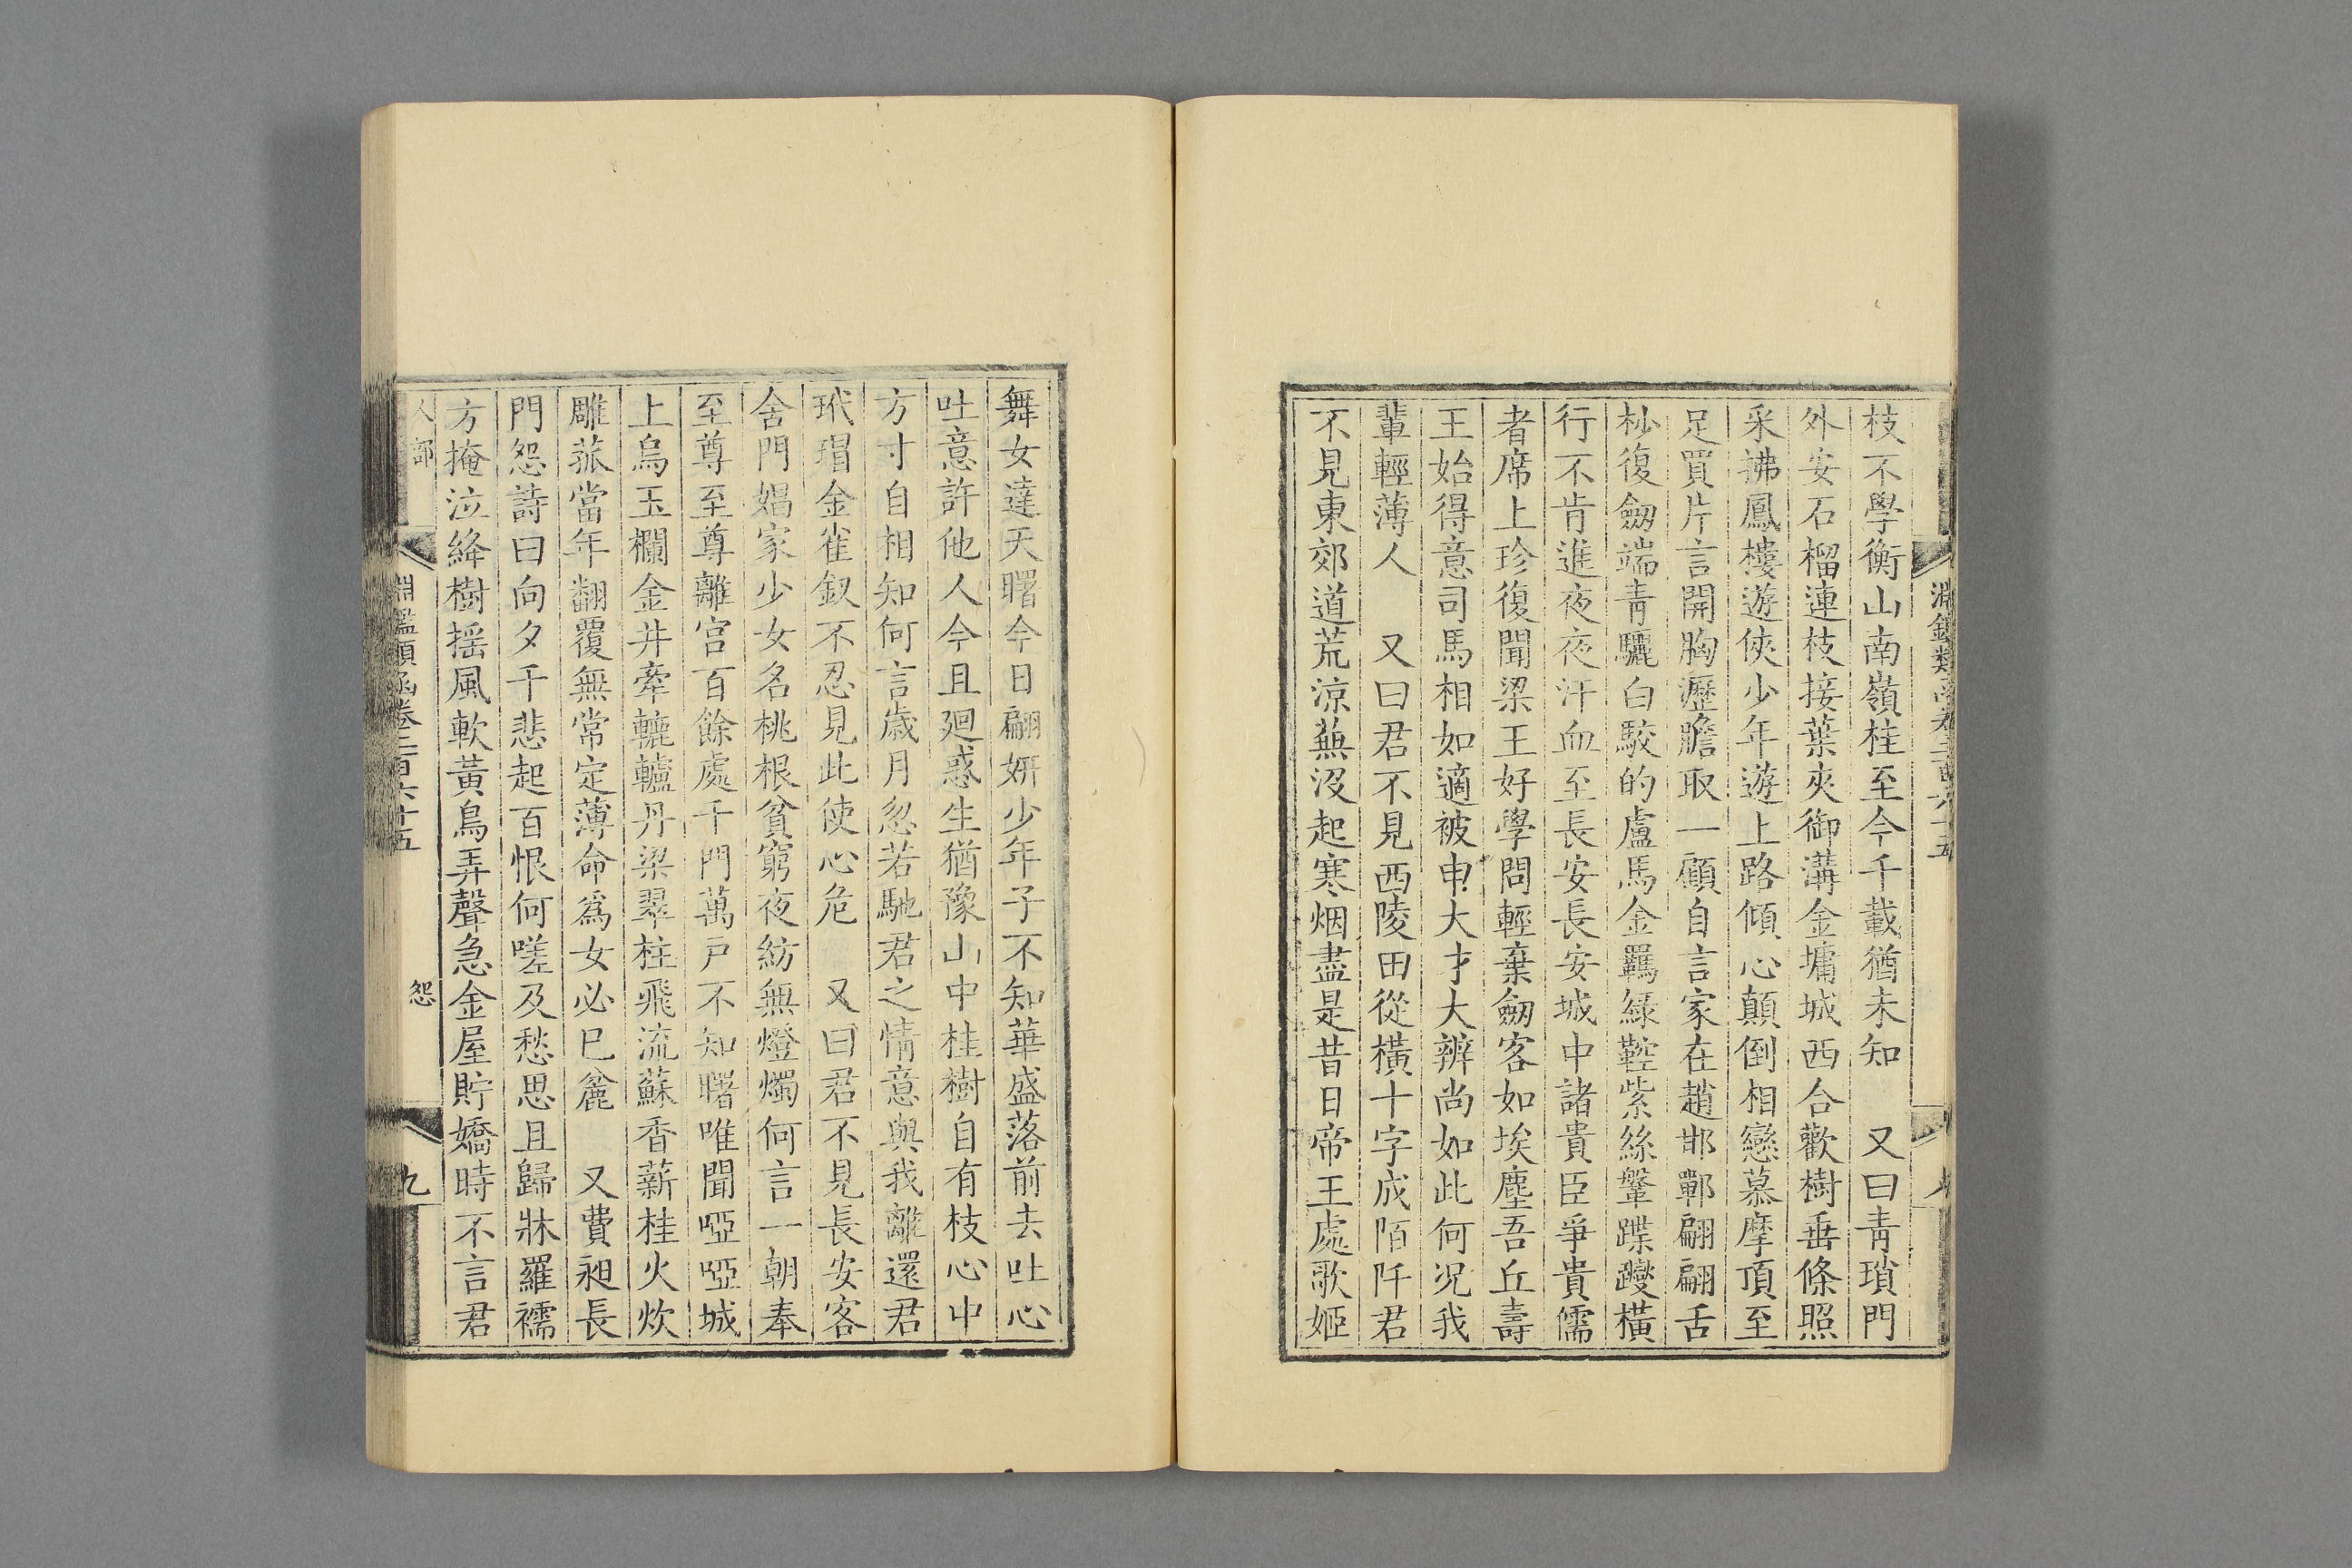 枝不學衡山南嶺桂至今千載猶未知　又曰青瑣門
外安石榴連枝接葉夾御溝金墉城西合歡樹垂條照
采拂鳳樓遊俠少年遊上路傾心顛倒相戀慕摩頂至
足買片言開胸瀝膽取一顧自言家在趙邯鄲翩翩舌
杪復劒端青驪白駮的盧馬金羈綠鞚紫絲鞶蹀躞橫
行不肯進夜夜汗血至長安長安城中諸貴臣爭貴儒
者席上珍復聞梁王好學問輕棄劒客如埃塵吾丘壽
王始得意司馬相如適被申大才大辨尚如此何况我
輩輕薄人　又曰君不見西陵田從橫十字成陌阡君
不見東郊道荒涼蕪沒起寒烟盡是昔日帝王處歌姬
舞女達天曙今日翩妍少年子不知華盛落前去吐心
吐意許他人今且廻惑生猶豫山中桂樹自有枝心中
方寸自相知何言歲月忽若馳君之情意與我離還君
玳瑁金雀釵不忍見此使心危　又曰君不見長安客
舍門娼家少女名桃根貧窮夜紡無燈燭何言一朝奉
至尊至尊離宮百餘處千門萬戸不知曙唯聞啞啞城
上烏玉欄金井牽轆轤丹梁翠柱飛流蘇香薪桂火炊
雕菰當年翻覆無常定薄命爲女必已麄　又費昶長
門怨詩曰向夕千悲起百恨何嗟及愁思且歸牀羅襦
方掩泣絳樹揺風軟黃鳥弄聲急金屋貯嬌時不言君
人部　淵鑑類函卷三百六十五　怨　九